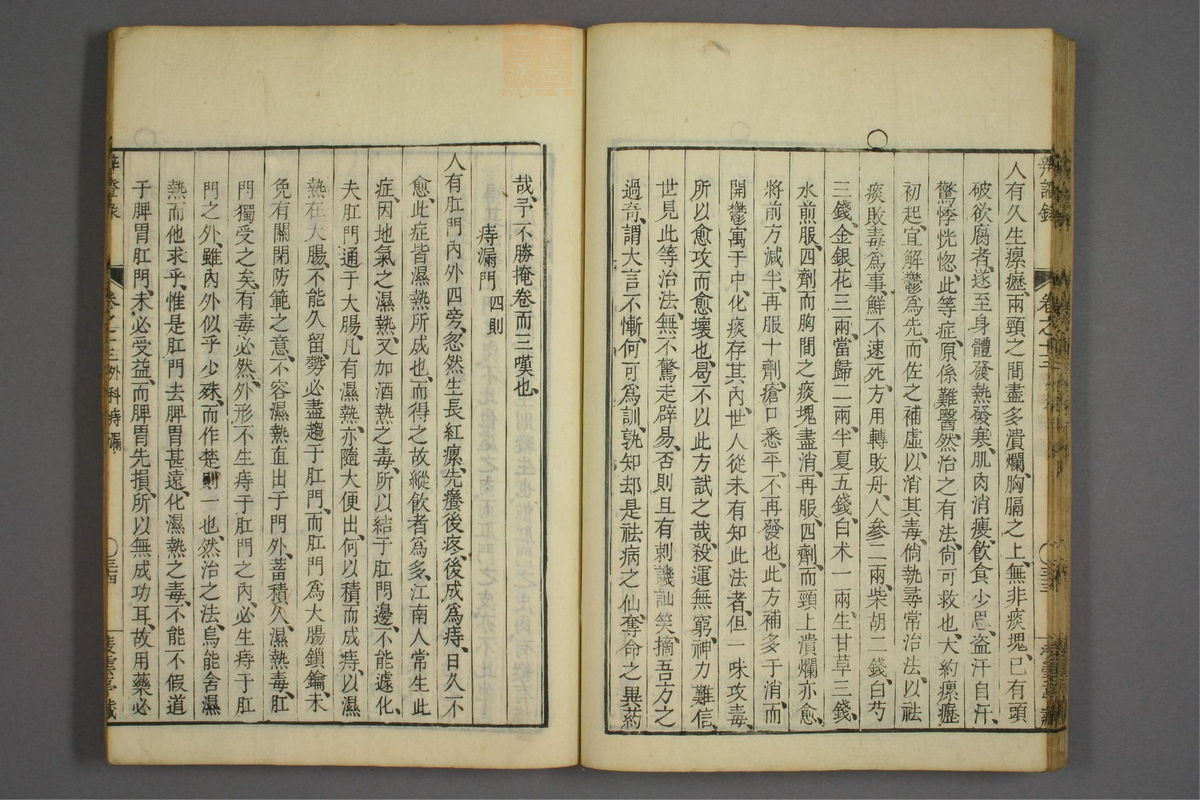 人有久生瘰癧、兩頸之間盡多潰爛、胸膈之上、無非痰塊、已有頭
破欲腐者、遂至身體發熱發寒、肌肉消瘦、飲食少思、盗汗自汗、
驚悸恍惚、此等症、原係難醫、然治之有法、尚可救也、大約瘰癧
初起、宜解鬱爲先、而佐之補虛、以消其毒、倘執尋常治法、以祛
痰敗毒爲事、鮮不速死、方用轉敗丹、人參二兩、柴胡二錢、白芍
三錢、金銀花三兩、當歸二兩、半夏五錢、白术一兩、生甘草三錢、
水煎服、四劑而胸間之痰塊盡消、再服四劑、而頸上潰爛亦愈、
將前方減半、再服十劑、瘡口悉平、不再發也、此方補多于消、而
開鬱寓于中、化痰存其內、世人從未有知此法者、但一味攻毒、
所以愈攻而愈壞也、曷不以此方試之哉、殺運無窮、神力難信、
世見此等治法、無不驚走辟易、否則且有刺譏訕笑、摘吾方之
過奇、謂大言不慚、何可爲訓、孰知却是祛病之仙、奪命之異葯
辨證錄
卷之十三
哉、予不勝掩卷而三嘆也、
痔漏門 四則
人有肛門內外四旁、忽然生長紅瘰、先癢後疼、後成爲痔、日久不
愈、此症皆濕熱所成也、而得之故、縱飲者爲多、江南人常生此
症、因地氣之濕熱、又加酒熱之毒、所以結于肛門邊、不能遽化、
夫肛門通于大腸、凡有濕熱、亦隨大便出、何以積而成痔、以濕
熱在大腸、不能久留、勢必盡趨于肛門、而肛門爲大腸鎖鑰、未
免有關閉防範之意、不容濕熱直出于門外、蓄積久、濕熱毒、肛
門獨受之矣、有毒必然外形、不生痔于肛門之內、必生痔于肛
門之外、雖內外似乎少殊、而作楚則一也、然治之法、烏能舍濕
熱而他求乎、惟是肛門去脾胃甚遠、化濕熱之毒、不能不假道
于脾胃、肛門未必受益、而脾胃先損、所以無成功耳、故用藥必
卷之十三外科痔漏
三四